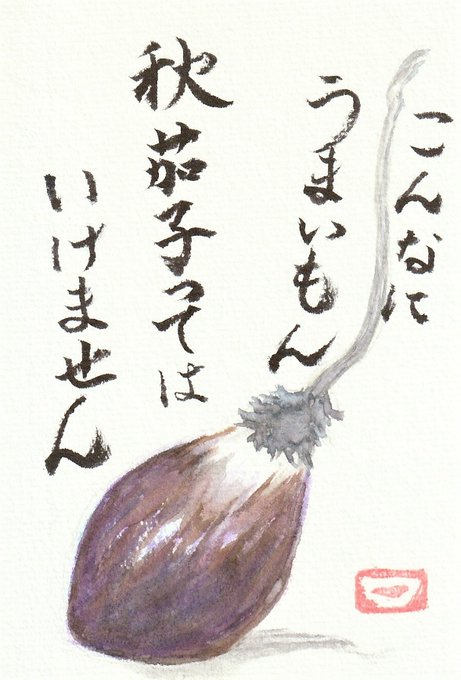 こんなに
うまいもん
秋茄子っては
いけません